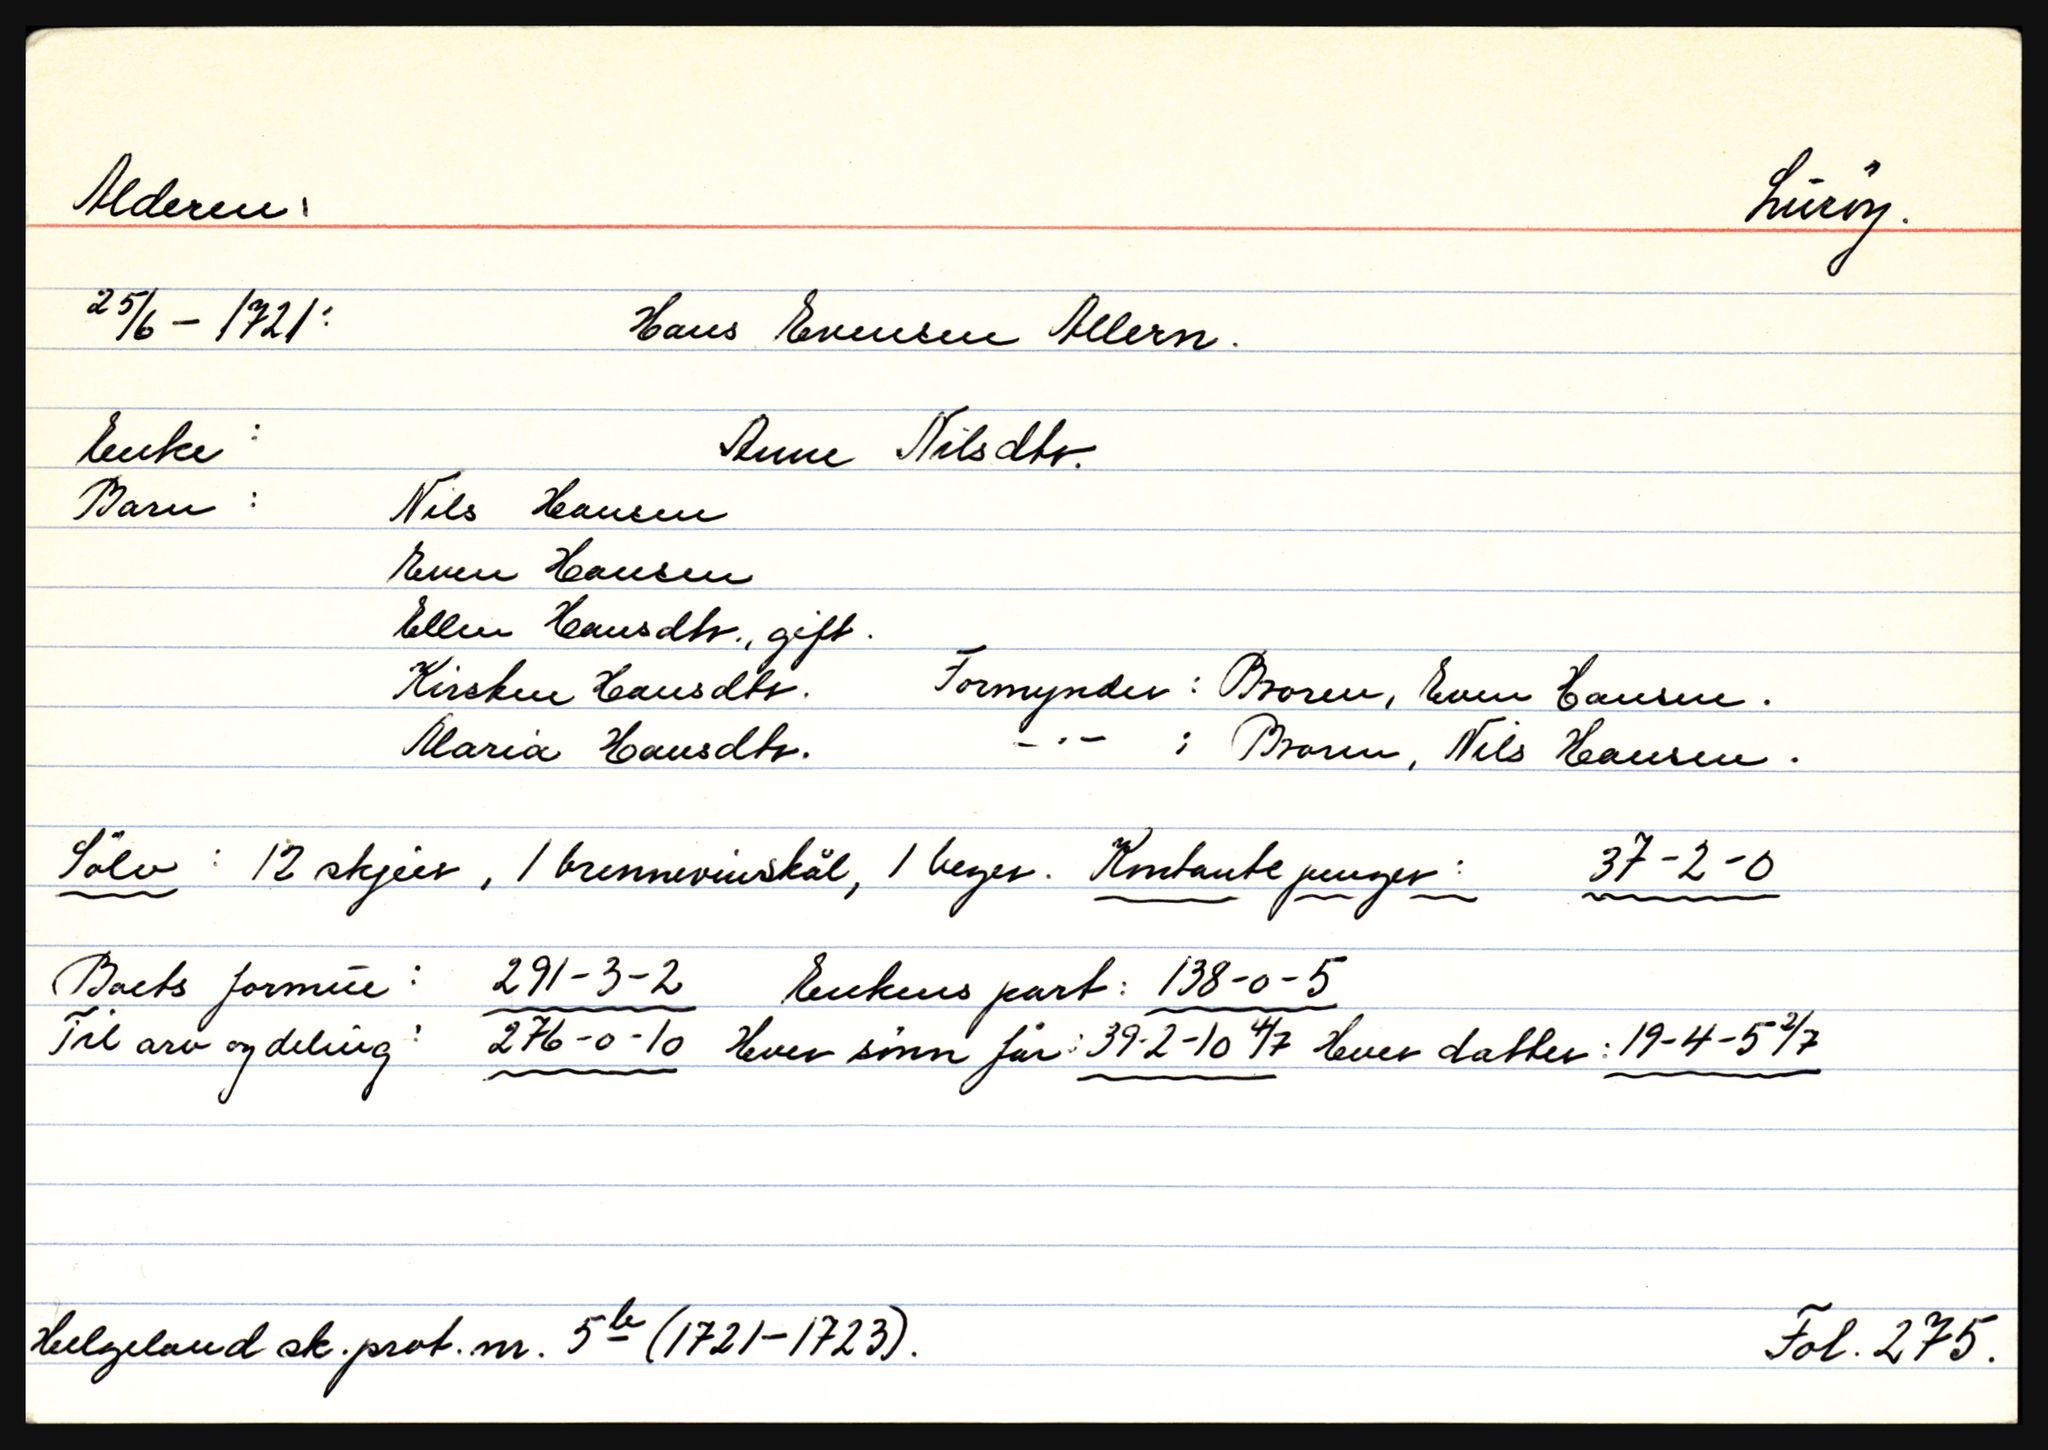 Alderen: Lurøy.
25/6 - 1721: Hans Evensen Allern.
Enke: Anne Nilsdtr.
Barn: Nils Hansen
Even Hansen
Ellen Hansdtr., gift.
Kirsten Hansdtr. Formynder: Broren, Even Hansen.
Maria Hansdtr. -"- : Broren, Nils Hansen.
Sölv: 12 skjeer, 1 brennevinskål, 1 beger. Kontante penger: 37-2-0
Boets formue: 291-3-2 Enkens part: 138-0-5
Til arv og deling: 276-0-10 Hver sönn får: 39-2-10 4/7 Hver datter: 19-4-5 2/7
Helgeland sk. prot. nr. 5 b (1721-1723). Fol. 275.